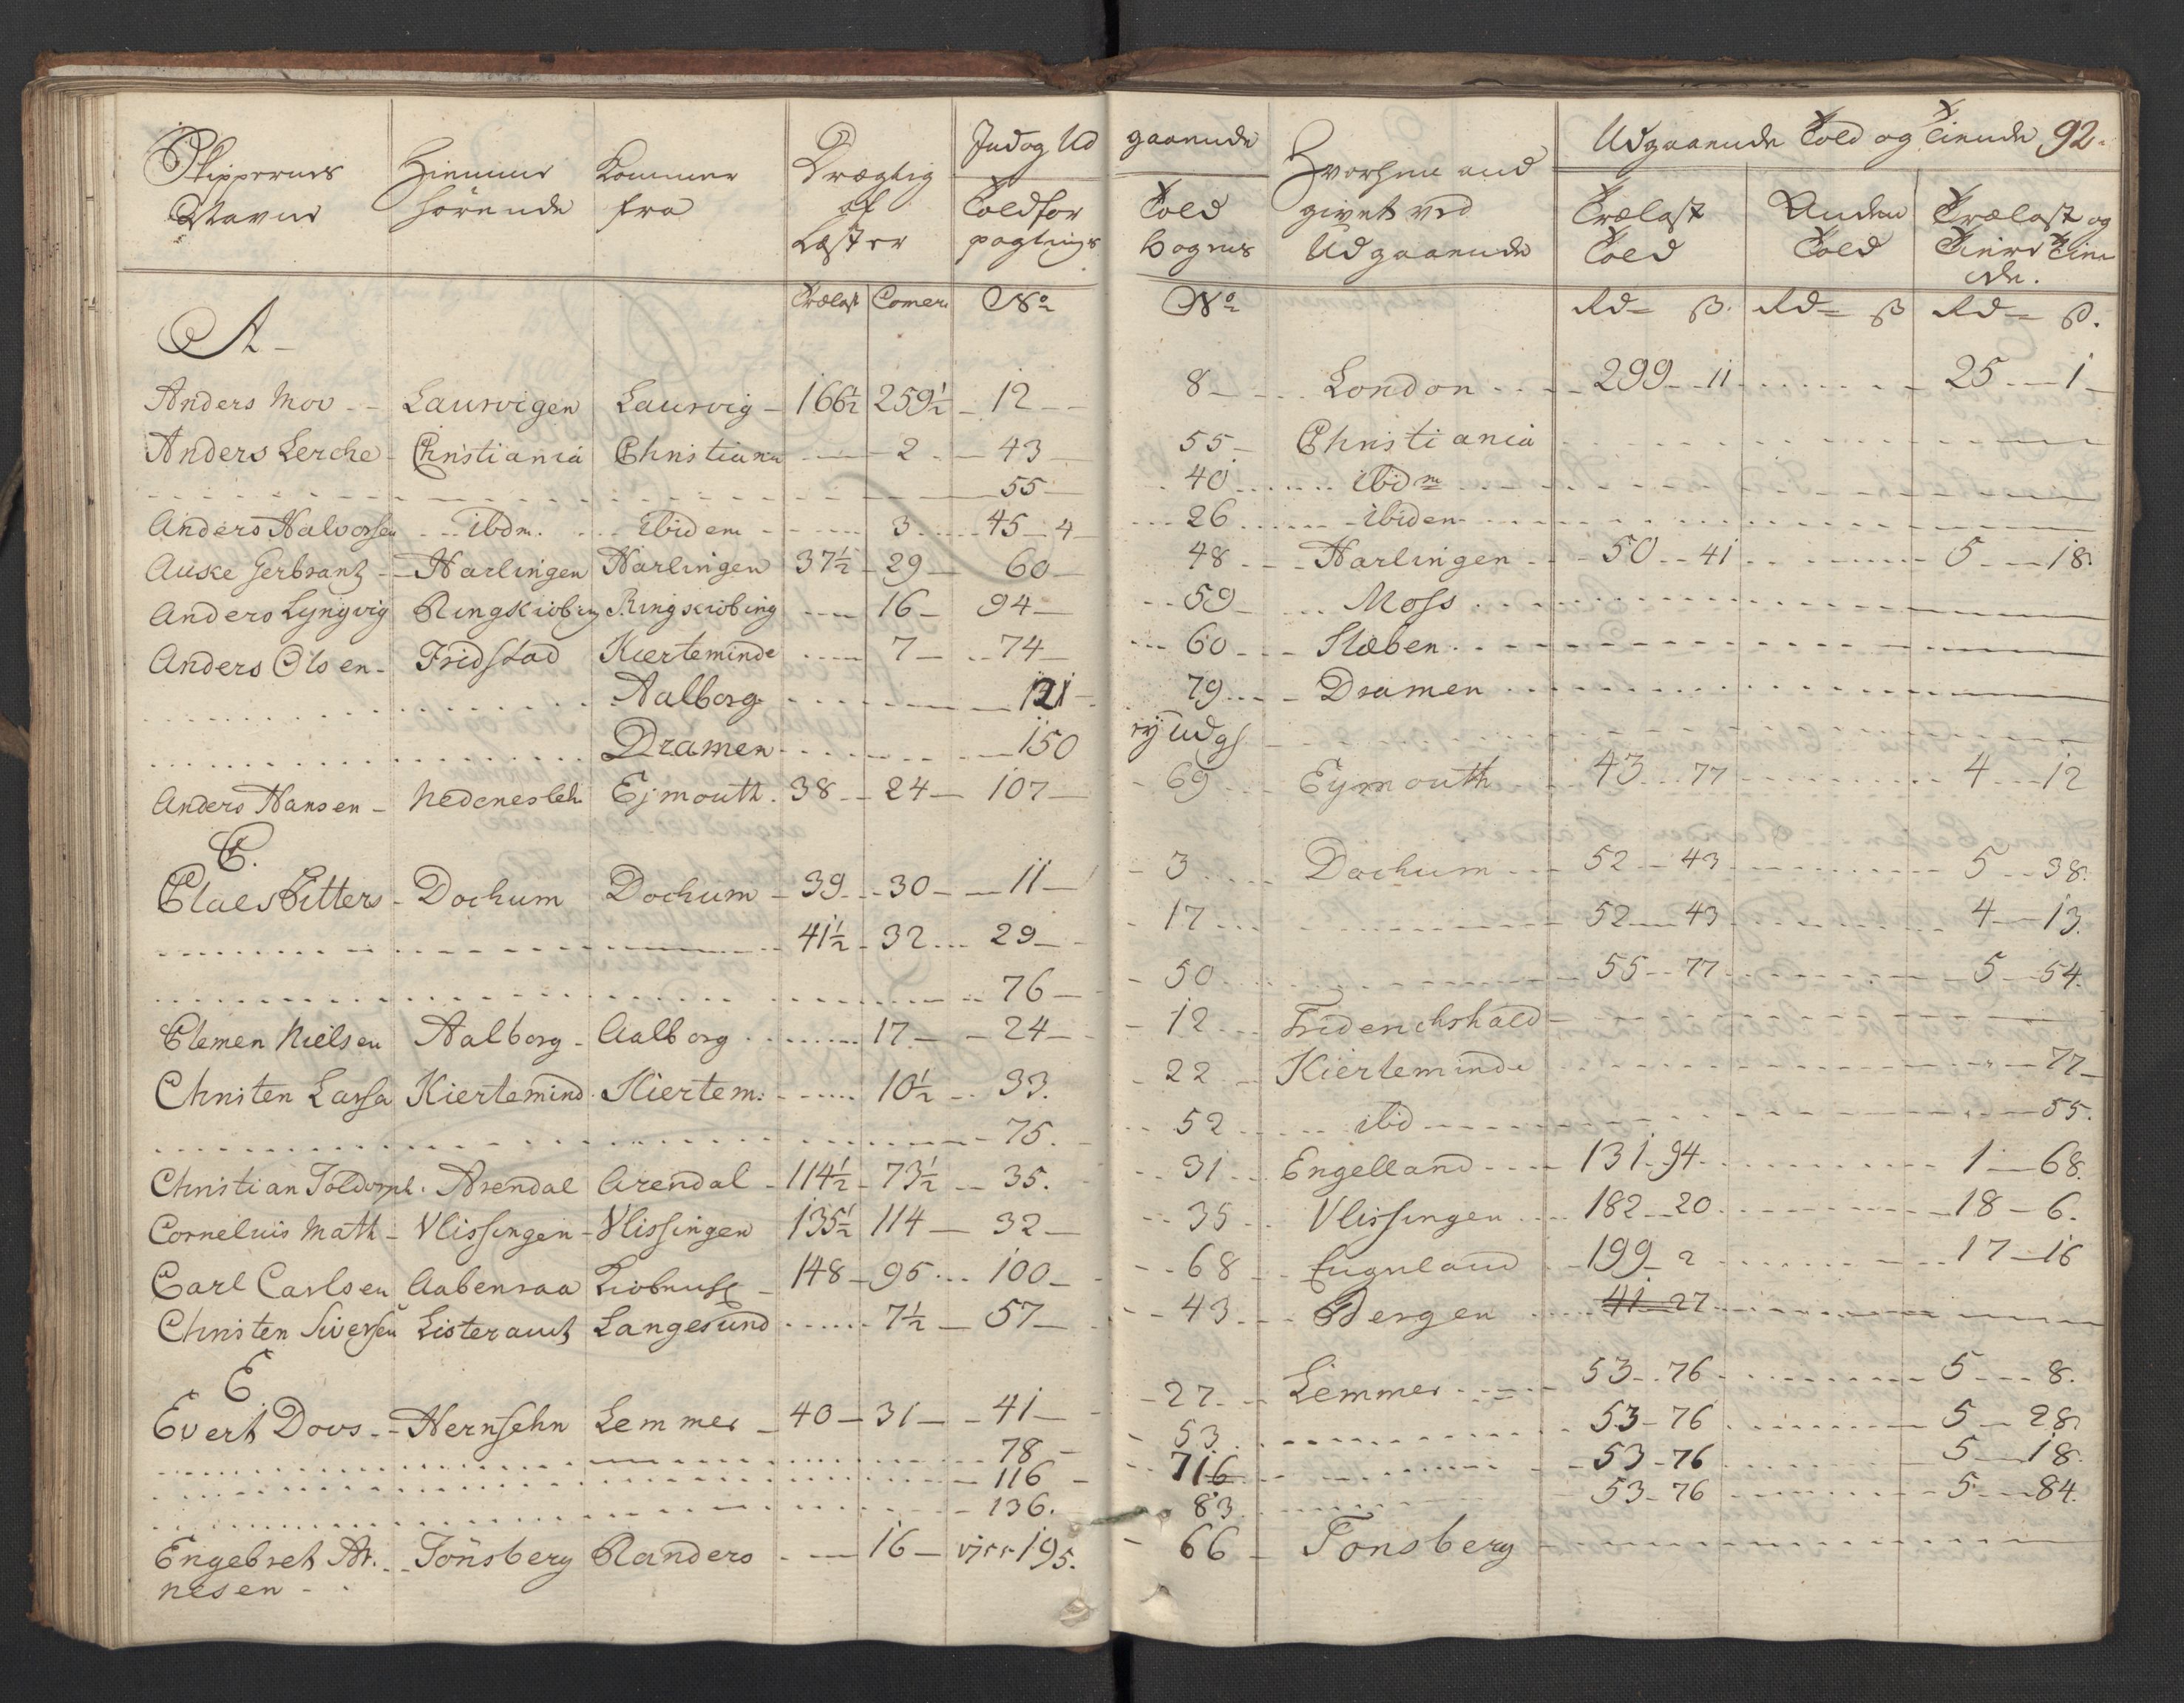 Skippernes Navne | Hiemme hörende | Kommer fra | Drægtig af Læster | Ind og Ud gaaende | Hvorhen and givet ved Udgaaende | Udgaaende Told og Tiende 92.
Toldfor pagtnings | Told bogens | Trælast Told | Anden Told | Trælast og Tiere Tiende.
Trælast | Comerc | No | No | Rd ß. | Rd ß | Rd ß.
A
Anders Mov | Laurvigen | Laurvig | 166½ | 259½ | 12 | 8 | London | 299 11 | 25 1
Anders Lerche | Christiania | Christiania | 2 | 43 | 55 | Christiania
55 | 40 | ibidm
Anders Halvorsen | ibdm. | ibidem | 3 | 45 4 | 26 | ibidem
Auske Gerbrantz | Harlingen | Harlingen | 37½ | 29 | 60 | 48 | Harlingen | 50 41 | 5 18.
Anders Lyngvig | Ringskiobing | Ringskiobing | 16 | 94 | 59 | Moss
Anders Olsen | Fridstad | Kierteminde | 7 | 74 | 60 | Slæben
Aalborg | 121 | 79 | Dramen
Dramen | 150 | ej udg
Anders Hansen | Nedenesleh | Ejmouth | 38 | 24 | 107 | 69 | Eymouth | 43 77 | 4 12
C.
Claes Ritters | Dochum | Dochum | 39 | 30 | 11 | 3 | Dochum | 52 43 | 5 38.
41½ | 32 | 29 | 17 | 52 43 | 4 13.
76 | 50 | 55 77 | 5 54.
Clemen Nielsen | Aalborg | Aalborg | 17 | 24 | 12 | Friderichshald
Christen Larsen | Kiertemind | Kiertem: | 10½ | 33. | 22 | Kierteminde | 77
75. | 52 | ibd | 55.
Christian Toldorph. | Arendal | Arendal | 114½ | 73½ | 35. | 31 | Engelland | 131 94 | 1 68.
Cornelius Math | Vlissingen | Vlissingen | 135½ | 114 | 32 | 35 | Vlissingen | 182 20 | 18 6.
Carl Carlsen | Aabenraa | Kiobenh | 148 | 95 | 100 | 68 | Engeland | 199 2 | 17 16
Christen Siversen | Listeramt | Langesund | 7½ | 57 | 43 | Bergen | 41 27
E
Evert Dovs | Hernsehn | Lemmer | 40 | 31 | 41 | 27 | Lemmer | 53 76 | 5 8.
78 | 53 | 53 76 | 5 28.
116 | 716 | 53 76 | 5 18.
136. | 83 | 53 76 | 5 84.
Engebret Ar. | Tönsberg | Randers | 16 | 195. | 66 | Tonsberg
nesen